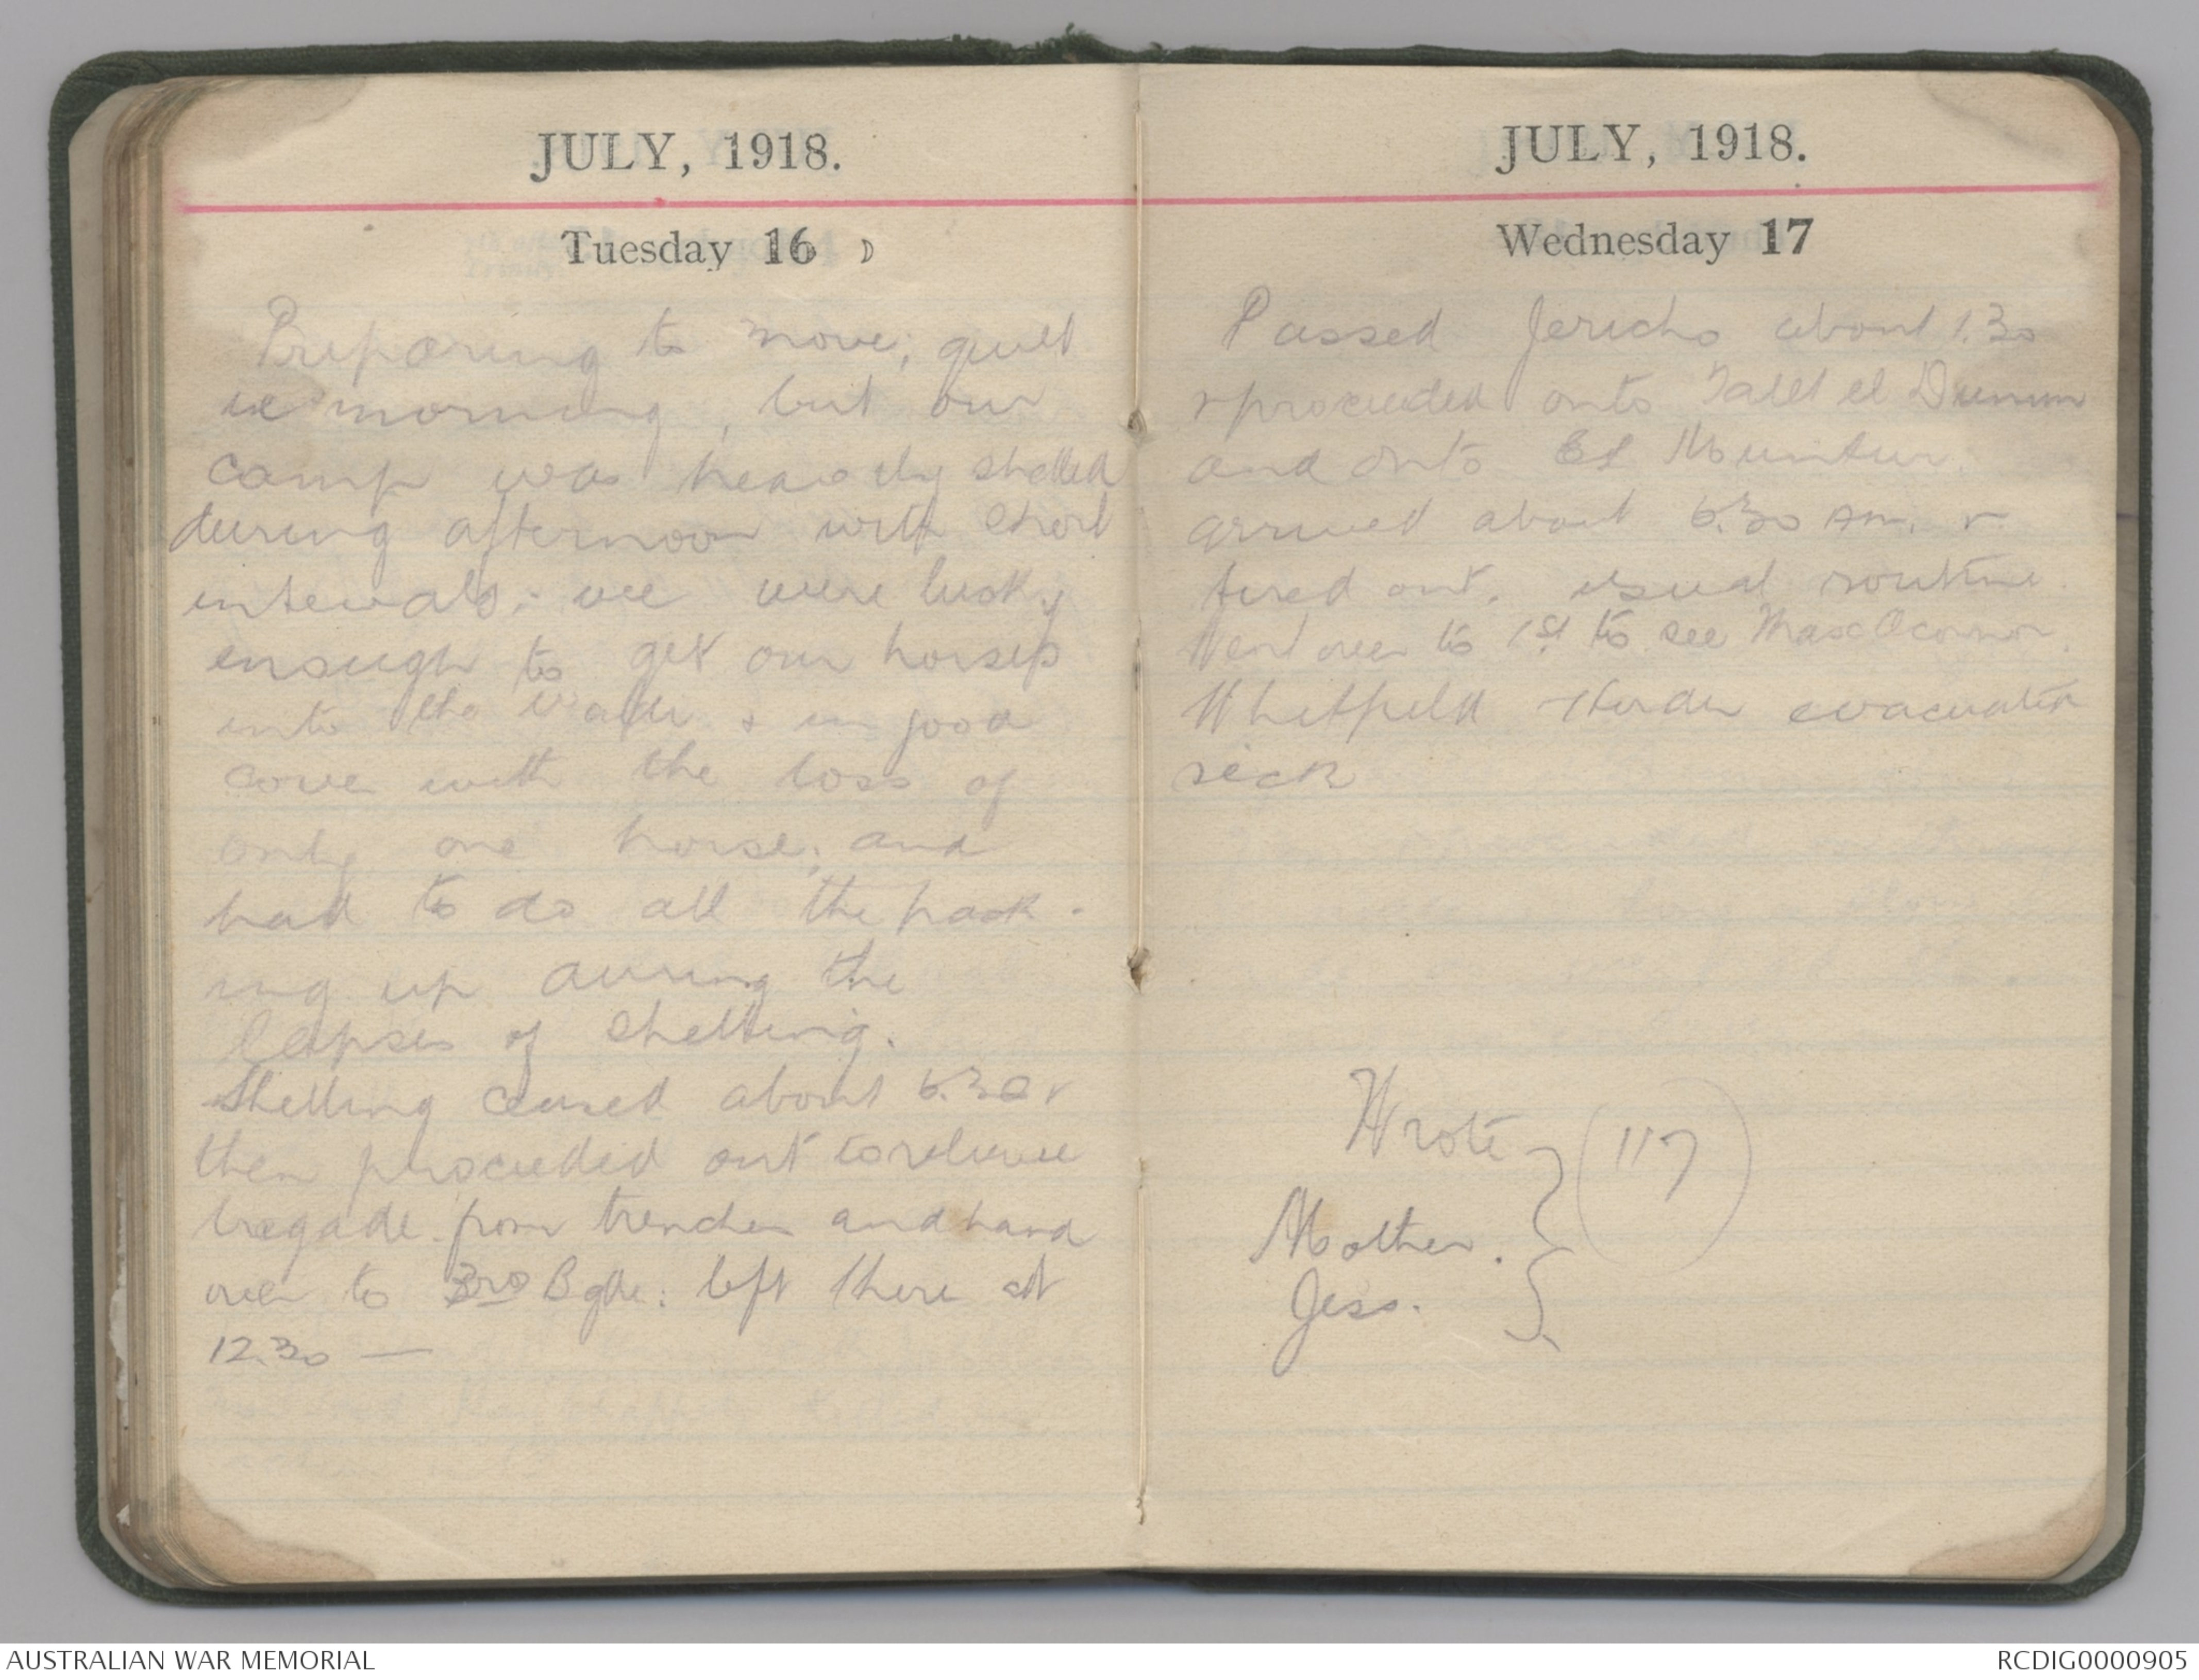 JULY, 1918.
Tuesday 16
Preparing to move; quiet
in morning, but our
camp was heavily shelled
during afternoon with short
intervals; we were lucky
enough to get our horses
into the wadi & in good
cover with the loss of
only one horse; and
had to do all the pack-
ing up during the
lapses of shelling.
Shelling ceased about 6.30 &
then proceeded out to relieve
brigade from trenches and hand
over to 3rd Bgde: left there at
12.30 —
JULY, 1918.
Wednesday 17
Passed Jericho about 1.30
& proceeded onto Tallt el Dumm
and onto El Muntur.
arrived about 6.30 AM. &
tired out. usual routine.
Went over to 1st to see Max Oconnor.
Whitfield evacuated
sick
Wrote
Mother.
Jess.
(117)
AUSTRALIAN WAR MEMORIAL
RCDIG0000905